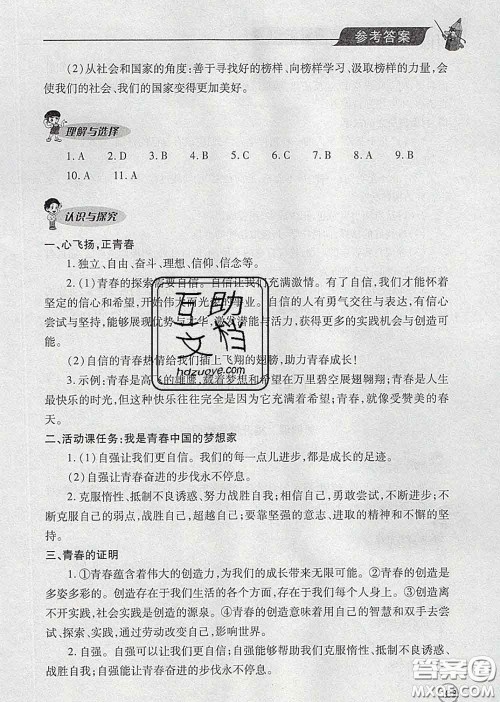 参考答案
(2)从社会和国家的角度:善于寻找好的榜样、向榜样学习、汲取榜样的力量,会
使我们的社会、我们的国家变得更加美好。
理解与选择
1. A 2. D 3. B 4. B 5. B 6. B 7. B 8. A 9. B
10. A 11. A
认识与探究
一、心飞扬,正青春
1. 独立、自由、奋斗、理想、信仰、信念等。
2. (1)青春的探索需要自信。自信让我们充满激情。有了自信,我们才能怀着
坚定的信心和希望,开始伟大而光荣的事业。自信的人有勇气交往与表达,有信心
尝试与坚持,能够展现优势与才华,激发潜能与活力,获得更多的实践机会与创造可
能。
(2)自信的青春热情给我们插上飞翔的翅膀,助力青春成长!
3. 示例:青春是高飞的雄鹰,载着梦想和希望在万里碧空展翅翱翔;青春是人生
最快乐的时光,但这种快乐往往完全是因为它充满着希望;青春,就像受赞美的春
天。
二、活动课任务:我是青春中国的梦想家
1. (1)自强让我们更自信。我们每一次的一点儿进步,都是成长的足迹。
(2)自强让青春奋进的步伐永不停息。
2. 克服惰性、抵制不良诱惑、努力战胜自我;相信自己,勇敢尝试,不断进步;不
断克服自己的弱点,战胜自己,超越自己;要靠坚强的意志、进取的精神和不懈的坚
持。
三、青春的证明
1. ①青春蕴含着伟大的创造力,为我们的成长带来无限可能。②青春的创造是
多姿多彩的。创造存在于我们生活的各个方面,存在于我们每个人身上。③创造离
不开实践,社会实践是创造的源泉。④青春的创造意味着用自己的智慧和双手去尝
试、探索、实践,通过劳动改变自己,影响世界。
2. 自强。自信可以让我们更自信;自强能够帮助我们克服惰性、抵制不良诱惑、
战胜自我;自强能让青春奋进的步伐永不停息。
互助文档
hdzuoye.com
答案圈
MXQE.COM